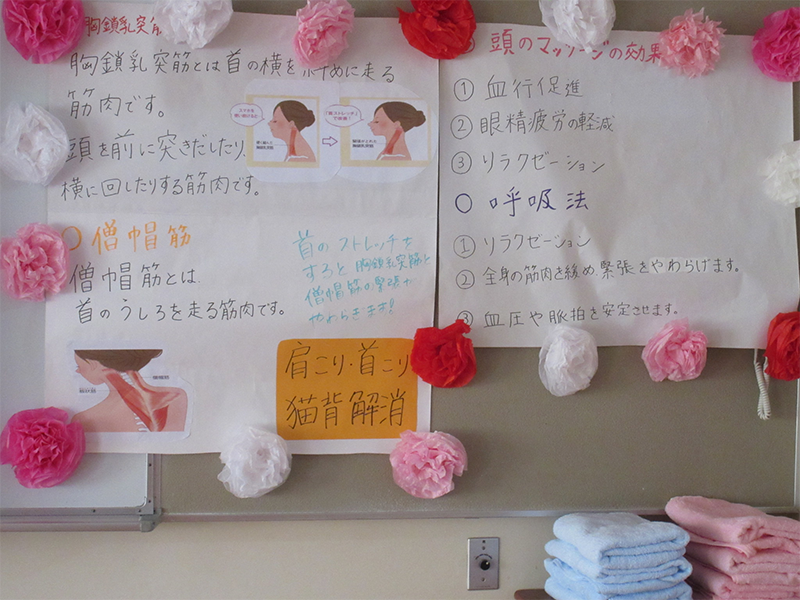 胸鎖乳突筋
胸鎖乳突筋とは首の横を斜めに走る
筋肉です。
頭を前に突きだしたり、
横に回したりする筋肉です。
〇僧帽筋
僧帽筋とは、
首のうしろを走る筋肉です。
首のストレッチを
すると胸鎖乳突筋と
僧帽筋の緊張が
やわらぎます!
肩こり・首こり
猫背解消
頭のマッサージの効果
① 血行促進
② 眼精疲労の軽減
③ リラクゼーション
〇 呼吸法
① リラクゼーション
② 全身の筋肉を緩め緊張をやわらげます。
③ 血圧や脈拍を安定させます。